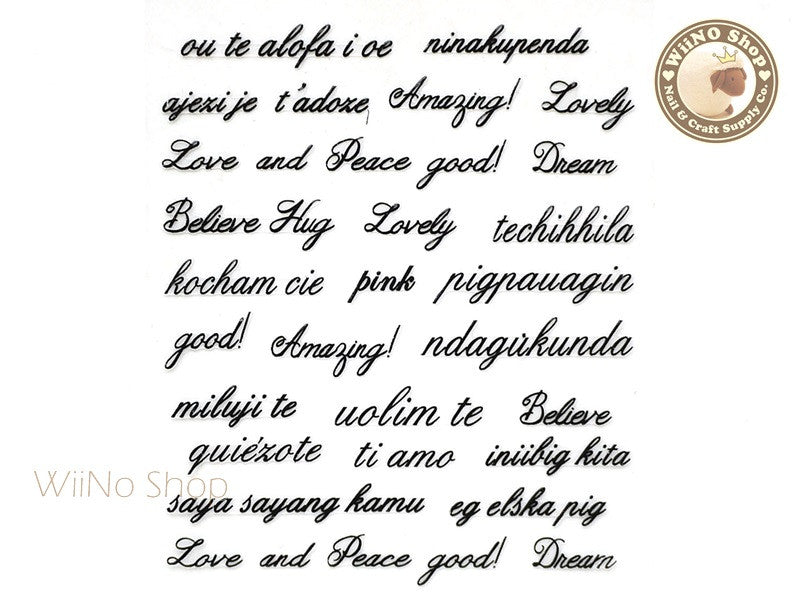 ou te alofa i oe ninakupenda
ajezi je t'adoze, Amazing! Lovely
Love and Peace good! Dream
Believe Hug Lovely techihhila
kocham cie pink pigpauagin
good! Amazing! ndagukunda
miluji te uolim te Believe
quiézote ti amo iniibig kita
saya sayang kamu eg elska pig
Love and Peace good! Dream
WiiNO Shop
Nail & Craft Supply Co.
WiiNo Shop